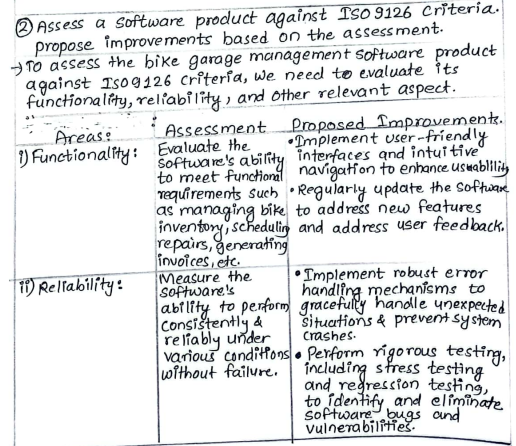 ② Assess a software product against ISO 9126 Criteria.
Propose improvements based on the assessment.
→ To assess the bike garage management software product
against ISO 9126 Criteria, we need to evaluate its
functionality, reliability, and other relevant aspect.
Areas:
Assessment
Proposed Improvements.
i) Functionality:
Evaluate the
software's ability
to meet functional
requirements such
as managing bike
inventory, schedulin
repairs, generating
invoices, etc.
• Implement user-friendly
interfaces and intuitive
navigation to enhance usability
• Regularly update the software
to address new features
and address user feedback.
ii) Reliability:
Measure the
software's
ability to perform
consistently &
reliably under
various conditions
without failure.
• Implement robust error
handling mechanisms to
gracefully handle unexpected
situctions & prevent system
crashes.
• Perform rigorous testing,
including stress testing
and regression testing,
to identify and eliminate
software bugs and
vulnerabilities.